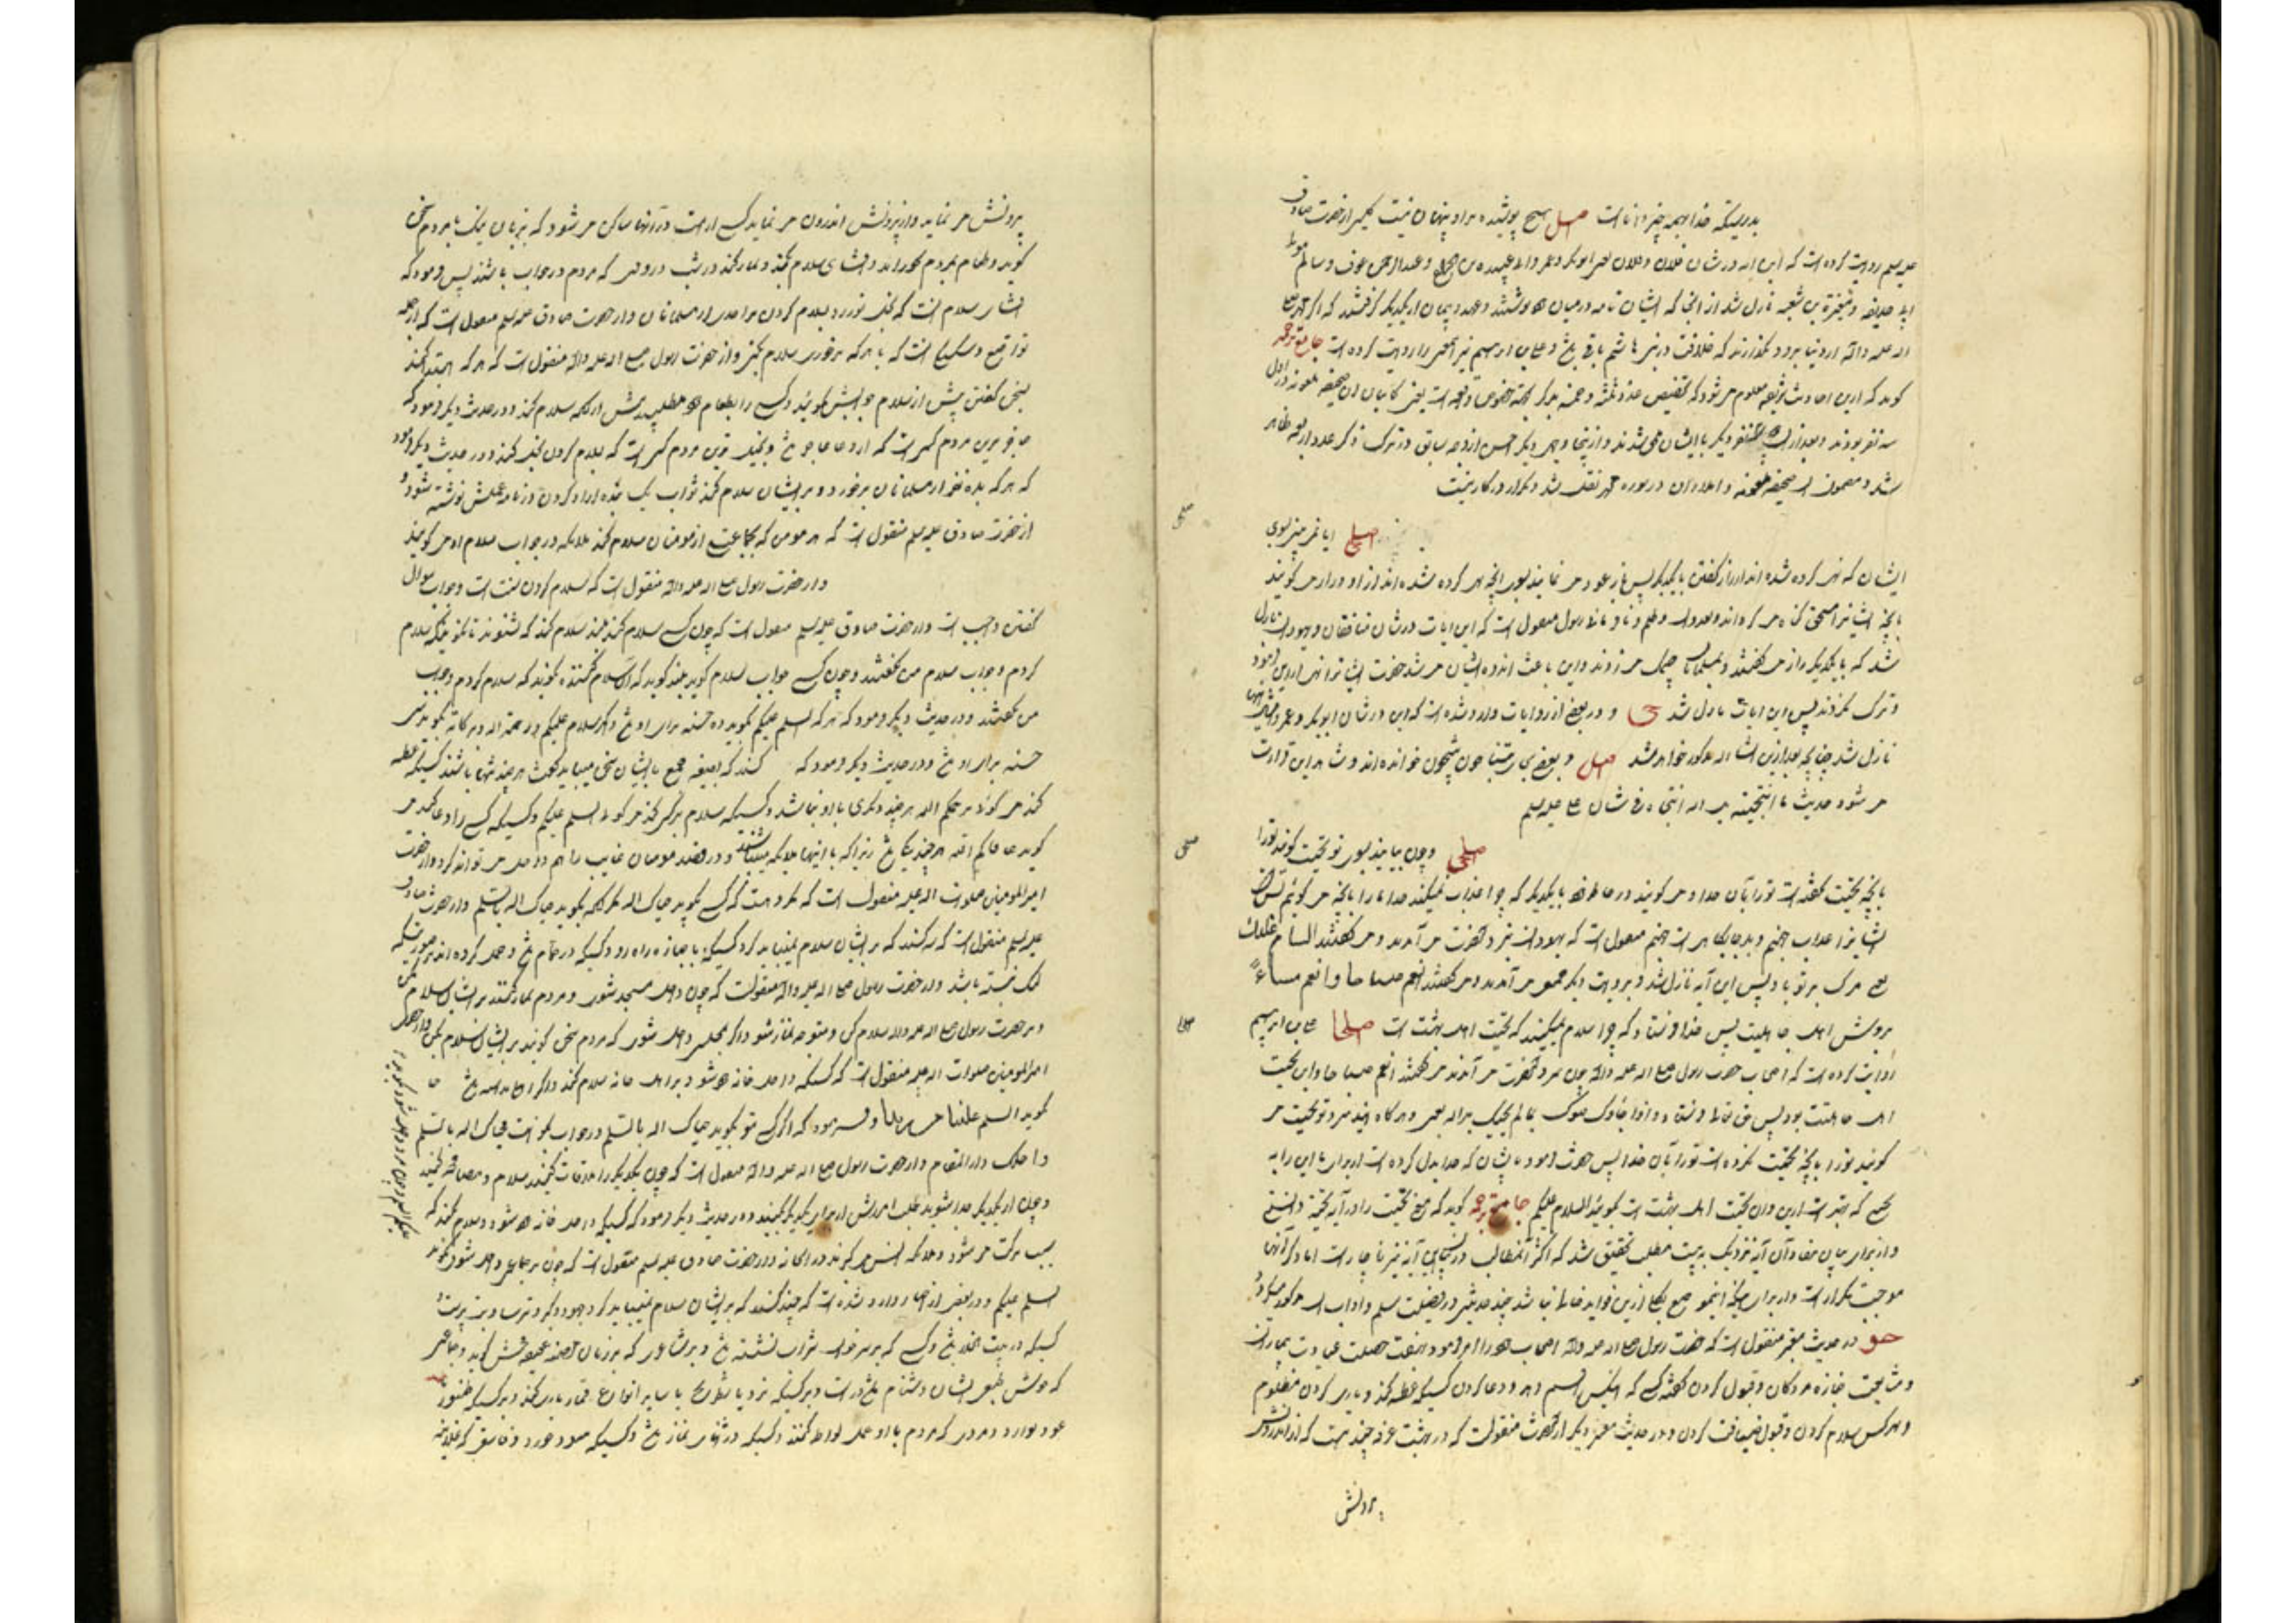 بدرستیکه خدا بهمه چیز داناست اصل هیچ پوشیده بر او پنهان نیست کلینی از حضرت صادق
علیه سلم روایت کرده است که این آیه در شان فلان و فلان یعنی ابوبکر و عمر و ابو عبیده بن جراح و عبدالرحمن عوف و سالم مولی
ابی حذیفه و مغیرة بن شعبه نازل شد از آنجا که ایشان نامه در میان هم نوشتند و عهد و پیمان از یکدیگر گرفتند که اگر محمد صلی
الله علیه و آله از دنیا برود نگذارند که خلافت در بنی هاشم باقی باشد و علی بن ابرهیم نیز همین را روایت کرده است جامع ترجمه
کوید که ازین احادیث شریفه معلوم میشود که تخصیص عدد ثلثه و خمسه بذکر بجهة خصوص واقعه است یعنی کاتبان آن صحیفه ملعونه در اول
سه نفر بودند و بعد از آن نفر دیگر با ایشان متفق شدند و ازینجا وجهی دیگر احسن از وجه سابق در ترک ذکر عدد اربعه ظاهر
شد و مضمون آن صحیفه ملعونه و اهل آن در سوره نقل شد تکرار در کار نیست
اصلی ایا نمی بینی بسوی
ایشان که نهی کرده شده اند از راز گفتن با یکدیگر پس باز عود می نمایند بسوی آنچه نهی کرده شده اند از او و راز می گویند
بآنچه ایشانرا مستحق گناه می گرداند و عدوان و ظلم و نافرمانی رسول منقول است که این آیات در شان منافقان و یهودان نازل
شد که با یکدیگر راز می گفتند و بمسلمانان چشمک می زدند و این باعث اندوه ایشان می شد حضرت ایشانرا نهی ازین فرمود
و ترک نکردند پس این آیات نازل شد و در بعضی از روایات وارد شده است که این در شان ابوبکر و عمر و امثال آنها
نازل شد چنانچه بعد ازین انشاء الله مذکور خواهد شد اصل و بعضی بجای یتناجون ینتجون خوانده اند و شاهد این قرائت
می شود حدیث ما انتجیته بل الله انتجاه در شان علی علیه سلم
اصلی و چون بیایند بسوی تو تحیت گویند ترا
بآنچه تحیت نگفته است ترا بآن خدا و می گویند در خاطرها با یکدیگر که چرا عذاب نمیکند خدا ما را بآنچه می گوئیم بس است
ایشانرا عذاب جهنم و بد جایگاهی است جهنم منقول است که یهودان نزد آنحضرت می آمدند و می گفتند السام علیک
یعنی مرگ بر تو باد پس این آیه نازل شد و بروایت دیگر جمعی می آمدند و می گفتند انعم صباحا و انعم مساءً
بروش اهل جاهلیت پس خدا فرستاد که چرا سلام نمیکنند که تحیت اهل بهشت است اصلی علی بن ابرهیم
روایت کرده است که اصحاب حضرت رسول صلی الله علیه و آله چون نزد آنحضرت می آمدند می گفتند انعم صباحا و این تحیت
اهل جاهلیت بود پس حق تعالی فرستاد و اذا جاؤک حیوک بما لم یحیک به الله یعنی و هرگاه آیند نزد تو تحیت می
گویند ترا بآنچه تحیت نکرده است ترا بآن خدا پس حضرت فرمود بایشان که خدا بدل کرده است از برای ما این را به
تحیتی که بهتر است ازین و آن تحیت اهل بهشت است بگوئید السلام علیکم جامع ترجمه گوید که معنی تحیت را در آیه تحیة دانستی
و از برای بیان مفاد آن آیه نزدیک به بیست مطلب تحقیق شد که اکثر آن مطالب در این آیه نیز ناچار است اما ذکر آنها
موجب تکرار است و از برای اینکه این موضع بکلی ازین فواید خالی نباشد چند حدیثی در فضیلت سلم و آداب آن مذکور میگردد
در حدیث معتبر منقول است که حضرت رسول صلی الله علیه و آله اصحاب خود را امر فرمود بهفت خصلت عیادت بیماران
و مشایعت جنازه مردگان و قبول کردن گفته کسی که او را قسم دهد و دعا کردن کسیکه عطسه کند و یاری کردن مظلوم
و بهر کس سلام کردن و قبول ضیافت کردن و در حدیث معتبر دیگر از آنحضرت منقولست که در بهشت غرفه چند هست که از اندرونش
بیرونش
بیرونش می نماید و از بیرونش اندرون می نماید کسی از امت در آنها ساکن می شود که بزبان نیک با مردم سخن
گوید و طعام بمردم بخوراند و افشای سلام بکند و نماز کند در شب در وقتی که مردم در خواب باشند پس فرمود که
افشای سلام آنست که بخل نورزد بسلام کردن بر احدی از مسلمانان و از حضرت صادق علیه سلم منقول است که از جمله
تواضع و شکستگی است که با هر که برخوری سلام بکنی و از حضرت رسول صلی الله علیه و آله منقول است که هر که ابتدا کند
بسخن گفتن پیش از سلام جوابش نگوئید و کسی را بطعام خود مطلبید پیش از آنکه سلام کند و در حدیث دیگر فرمود که
عاجزترین مردم کسی است که از دعا عاجز باشد و بخیل ترین مردم کسی است که بسلام کردن بخل کند و در حدیث دیگر فرمود
که هر که بده نفر از مسلمانان برخورد و بر ایشان سلام کند ثواب یک بنده آزاد کردن در نامه عملش نوشته شود و
از حضرت صادق علیه سلم منقول است که هر مومن که بجماعتی از مومنان سلام کند ملائکه در جواب سلام او می گویند
و از حضرت رسول صلی الله علیه و آله منقول است که سلام کردن سنت است و جواب سوال
گفتن واجب است و از حضرت صادق علیه سلم منقول است که چون کسی سلام کند بلند سلام کند که بشنوند تا نگوید که سلام
کردم و جواب سلام من نگفتند و چون کسی جواب سلام گوید بلند گوید که آن سلام کننده نگوید که سلام کردم و جواب
من نگفتند و در حدیث دیگر فرمود که هر که السلم علیکم بگوید ده حسنه برای او باشد و اگر سلام علیکم و رحمة الله و برکاته بگوید سی
حسنه برای او باشد و در حدیث دیگر فرمود که کسند که بصیغه جمع بایشان سخن میباید گفت هر چند تنها باشند کسیکه عطسه
کند می گوئد یرحمکم الله هر چند دیگری با او نباشد و کسیکه سلام بر کسی کند می گوئد السلم علیکم و کسیکه کسی را دعا کند می
گوید عافاکم الله هر چند یکی باشد زیرا که با اینها ملائکه میباشند و در قصد مومنان غایب را هم داخل می توان کرد و از حضرت
امیرالمومنین صلوات الله علیه منقول است که مکروهست که کسی بگوید حیاک الله مگر آنکه بگوید حیاک الله بالسلم و از حضرت صادق
علیه سلم منقول است که سه کسند که بر ایشان سلام نمیباید کرد کسیکه با جنازه راه رود و کسیکه در حمام باشد
لنگ نبسته باشد و از حضرت رسول صلی الله علیه و آله منقولست که چون داخل مسجد شوی و مردم نماز کنند بر ایشان سلام مکن
و بر حضرت رسول صلی الله علیه و آله سلام کن و متوجه نماز شو و اگر بمجلسی داخل شوی که مردم سخن گویند بر ایشان سلام بکن و از حضرت
امیرالمومنین صلوات الله علیه منقول است که کسیکه داخل خانه خود شود بر اهل خانه سلام کند و اگر اهل نداشته باشد
بگوید السلم علینا من ربنا و فرمود که اگر کسی بتو بگوید حیاک الله بالسلم در جواب بگو انت فحیاک الله بالسلم
و احلک دار المقام و از حضرت رسول صلی الله علیه و آله منقول است که چون یکدیگر را ملاقات کنید سلام و مصافحه کنید
و چون از یکدیگر جدا شوید طلب آمرزش از برای یکدیگر بکنید و در حدیث دیگر فرمود که کسیکه داخل خانه خود شود سلام کند که
سبب برکت می شود و ملائکه انس می گیرند در آن خانه و از حضرت صادق علیه سلم منقول است که چون بر جماعتی داخل شوی بگوید
السلم علیکم و در بعضی از اخبار وارد شده است که چند کسند که بر ایشان سلام نمیباید کرد جهود و گبر و ترسا و بت پرست
کسیکه در بیت الخلا باشد و کسی که بر سر خوان شراب نشسته باشد و بر شاعری که بر زنان عفیفه فحش گوید و جماعتی
که خوش طبعی ایشان دشنام مادر است و بر کسیکه نرد یا شطرنج یا سایر انواع قمار بازی کند و بر کسیکه طنبور
عود نوازد و مردی که مردم با او عمل لواط کنند و کسیکه در اثنای نماز باشد و کسیکه سود خورد و فاسقی که علانیه